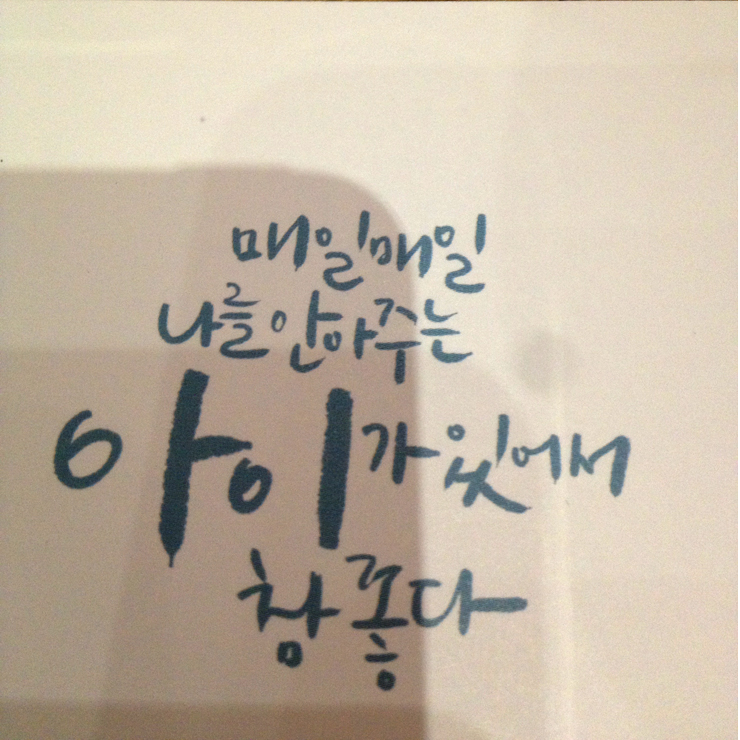 매일매일
나를안아주는
아이가있어서
참좋다